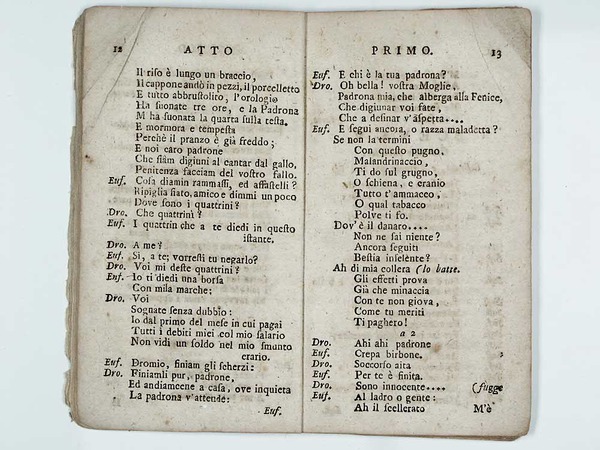 12 ATTO
Il riso è lungo un braccio,
Il cappone andò in pezzi, il porcelletto
E tutto abbrustolito, l'orologio
Ha suonate tre ore, e la Padrona
M ha suonata la quarta sulla testa.
E mormora e tempesta
Perchè il pranzo è già freddo;
E noi caro padrone
Che siam digiuni al cantar dal gallo,
Penitenza facciam del vostro fallo.
Euf. Cosa diamin rammassi, ed affastelli?
Ripiglia fiato, amico e dimmi un poco
Dove sono i quattrini?
Dro. Che quattrini?
Euf. I quattrin che a te diedi in questo
istante.
Dro. A me?
Euf. Si, a te; vorresti tu negarlo?
Dro. Voi mi deste quattrini?
Euf. Io ti diedi una borsa
Con mila marche;
Dro. Voi
Sognate senza dubbio:
Io dal primo del mese in cui pagai
Tutti i debiti miei col mio salario
Non vidi un soldo nel mio smunto
erario.
Euf. Dromio, finiam gli scherzi:
Dro. Finiamli pur, padrone,
Ed andiamcene a casa, ove inquieta
La padrona v'attende:
Euf.
PRIMO. 13
Euf. E chi è la tua padrona?
Dro. Oh bella! vostra Moglie,
Padrona mia, che alberga alla Fenice,
Che digiunar voi fate,
Che a desinar v'aspetta....
Euf. E segui ancora, o razza maladetta?
Se non la termini
Con questo pugno,
Malandrinaccio,
Ti do sul grugno,
O schiena, e cranio
Tutto t'ammacco,
O qual tabacco
Polve ti fo.
Dov'è il danaro....
Non ne sai niente?
Ancora seguiti
Bestia insolente?
Ah di mia collera (lo batte.
Gli effetti prova
Già che minaccia
Con te non giova,
Come tu meriti
Ti paghero!
a 2
Dro. Ahi ahi padrone
Euf. Crepa birbone.
Dro. Soccorso aita
Euf. Per te è finita.
Dro. Sono innocente.... (fugge
Euf. Al ladro o gente:
Ah il scellerato M'è